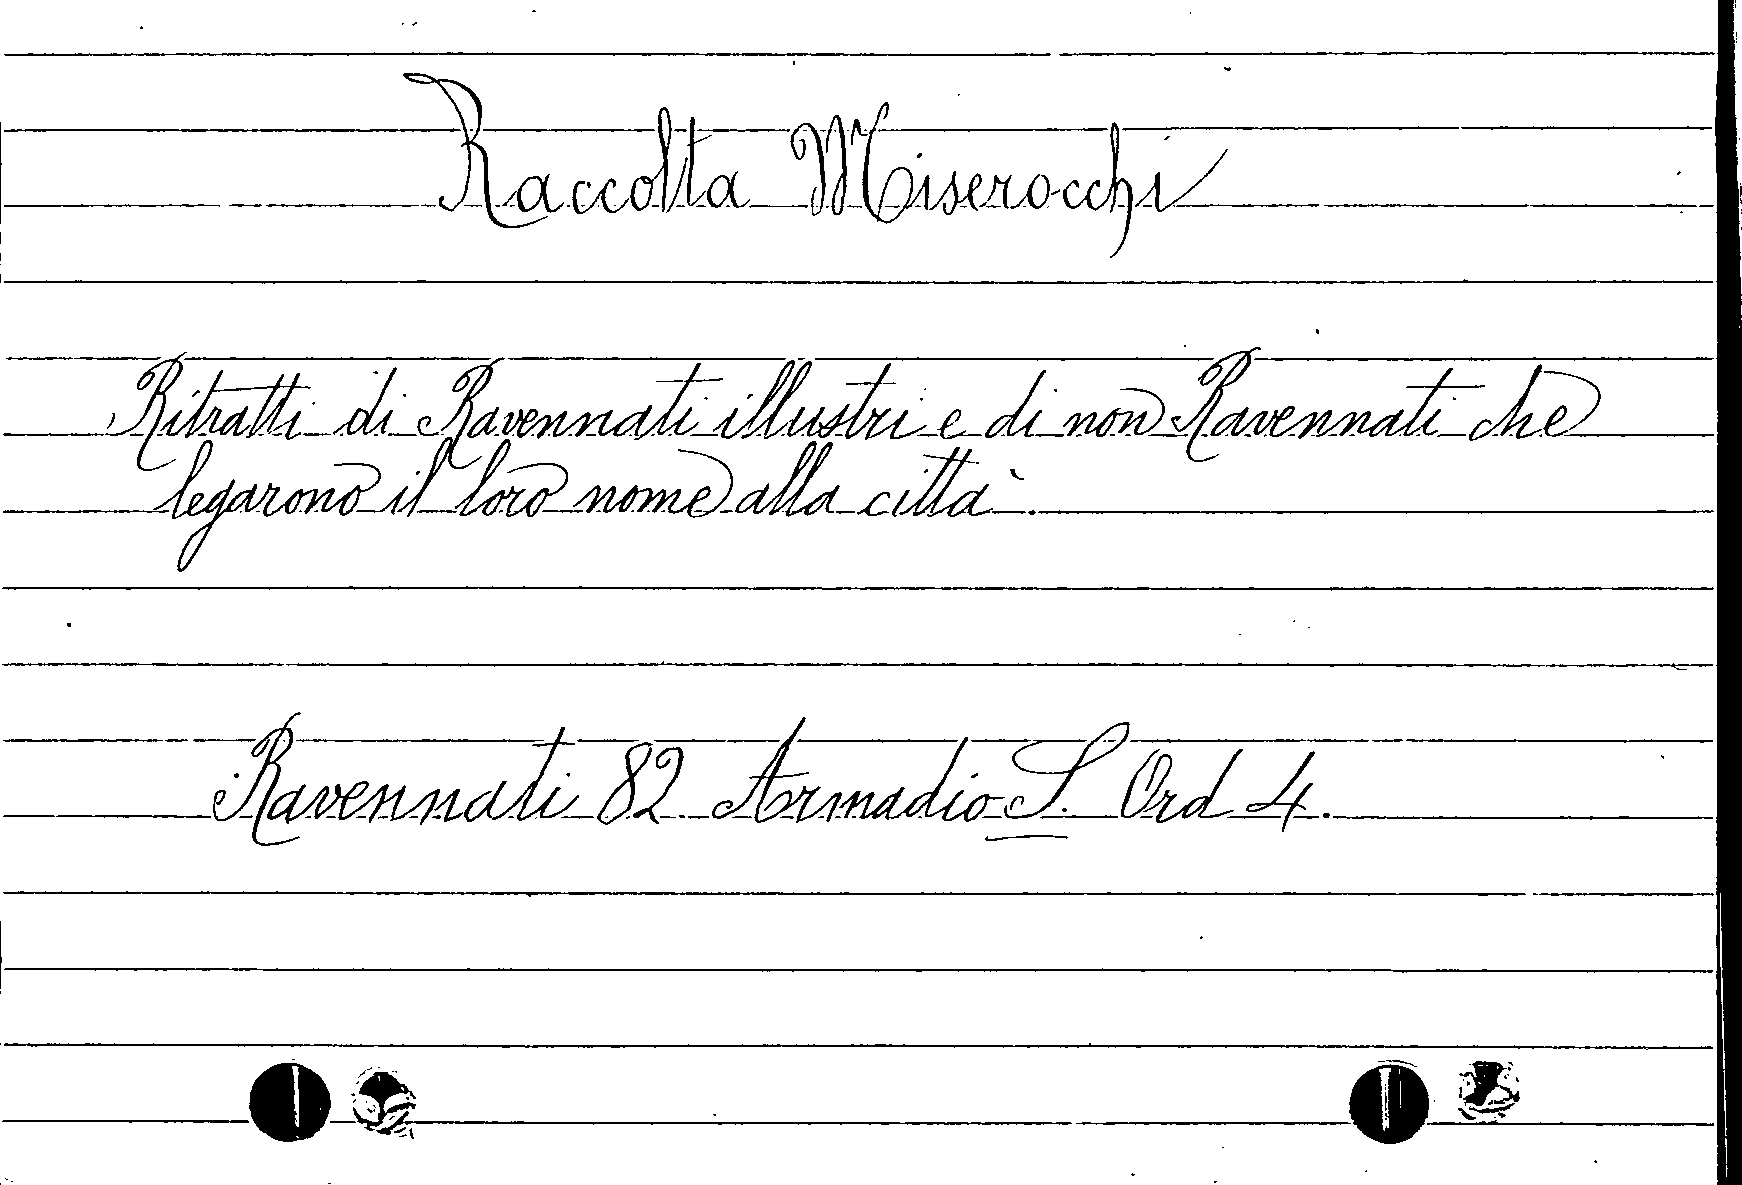 Raccolta Miserocchi
Ritratti di Ravennati illustri e di non Ravennati che
legarono il loro nome alla città.
Ravennati 82 Armadio S. Ord 4.